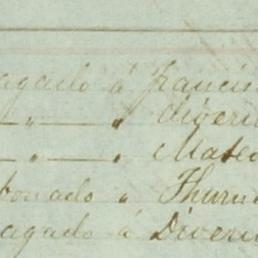 agado á Francis
— " — " diver
— " — " Mateo
bonado " Thurn
agado á Divers